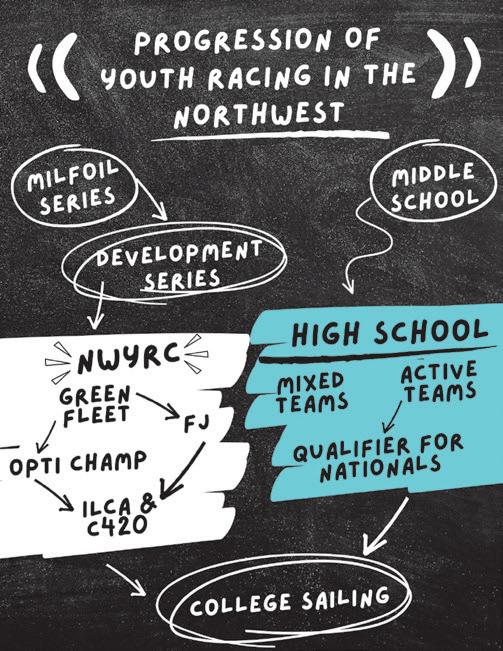 PROGRESSION OF
YOUTH RACING IN THE
NORTHWEST
MILFOIL
SERIES
MIDDLE
SCHOOL
DEVELOPMENT
SERIES
NWYRC
GREEN
FLEET
FJ
OPTI CHAMP
ILCA &
C420
HIGH SCHOOL
MIXED
TEAMS
ACTIVE
TEAMS
QUALIFIER FOR
NATIONALS
COLLEGE SAILING